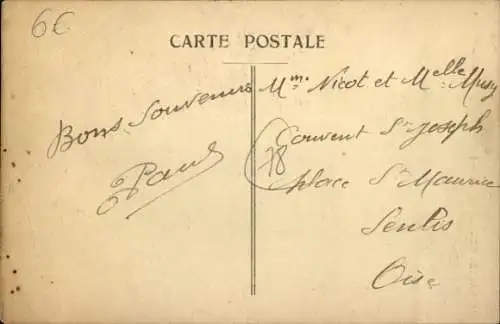 6€
CARTE POSTALE
Bons Souvenirs
Paul
Mme Nicot et Melle Mury
Couvent St Joseph
78
place St Maurice
Senlis
Oise